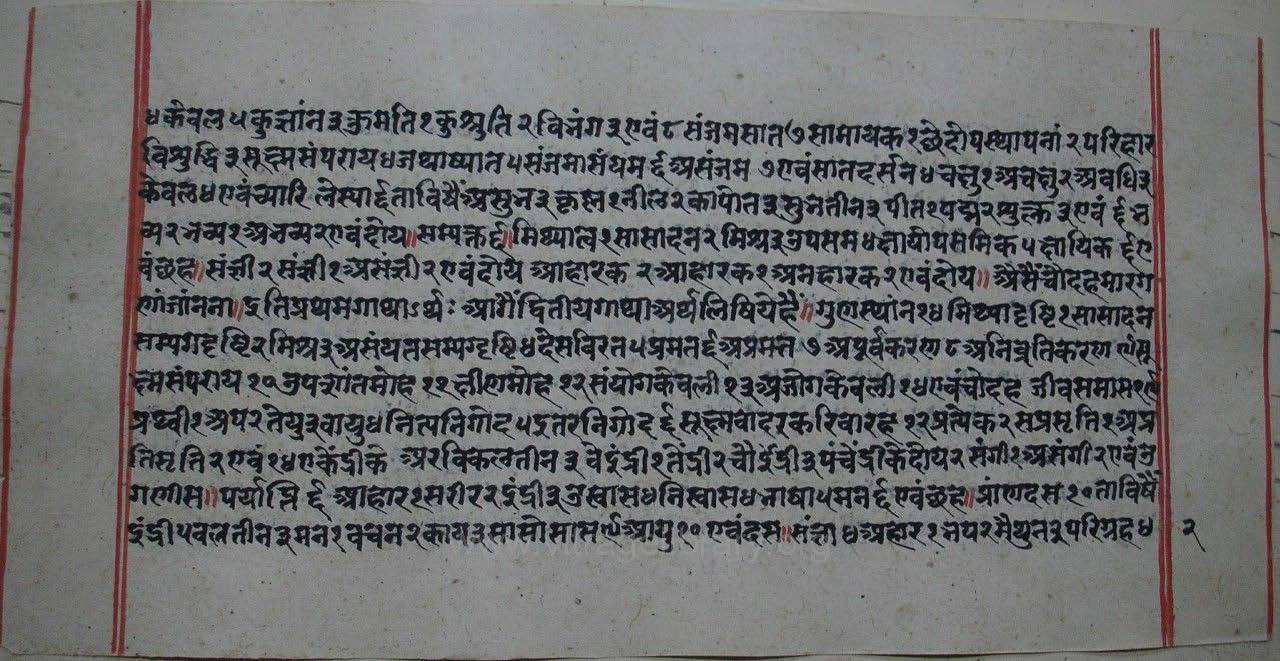 ४ केवल ५ कुज्ञांन ३ कुमति १ कुश्रुति २ विभंग ३ एवं ८ संजम सात ७ सामायक १ छेदोपस्थापनां २ परिहार
विशुद्धि ३ सूक्ष्म संपराय ४ जथाष्यात ५ संजमासंयम ६ असंजम ७ एवं सात दर्सन ४ चक्षु १ अचक्षु २ अवधि ३
केवल ४ एवं च्यारि लेस्या ६ ता विषैं असुभ ३ कृष्ण १ नील २ कापोत ३ सुभ तीन ३ पीत १ पद्म २ शुक्ल ३ एवं ६ भ
व्य २ भव्य १ अभव्य २ एवं दोय ॥ सम्यक्त ६ ॥ मिथ्यात्व १ सासादन २ मिश्र ३ उपसम ४ क्षायोपसमिक ५ क्षायिक ६ ए
वं छह ॥ संज्ञी २ संज्ञी १ असंज्ञी २ एवं दोय आहारक २ आहारक १ अनहारक २ एवं दोय ॥ असैं चौदह मारग
णां जांनना ॥ इति प्रथम गाथाऽर्थः आगैं द्वितीय गाथा अर्थ लिषिये हैं ॥ गुणस्थांन १४ मिथ्यादृष्टि १ सासादन
सम्यगदृष्टि २ मिश्र ३ असंयत सम्यग्दृष्टि ४ देसविरत ५ प्रमत्त ६ अप्रमत्त ७ अपूर्वकरण ८ अनिव्रतिकरण ९ सू
क्ष्म संपराय १० उपशांतमोह ११ क्षीणमोह १२ संयोगकेवली १३ अजोगकेवली १४ एवं चौदह जीवसमास १९
प्रथ्वी १ अप २ तेयु ३ वायु ४ नित्यनिगोद ५ इतरनिगोद ६ सूक्ष्म वादर करि बारह १२ प्रत्येक २ सप्रसृति १ अप्र
तिसृति २ एवं १४ एकेंद्री के अर विकलतीन ३ वेइंद्री १ तेंद्री २ चौइंद्री ३ पंचेंद्री के दोय २ संगी १ असंगी २ एवं उ
गणीस ॥ पर्याप्ति ६ आहार १ सरीर २ इंद्री ३ उस्वास ४ निस्वास ४ भाषा ५ मन ६ एवं छह ॥ प्रांण दस १० ता विषैं
इंद्री ५ वल तीन ३ मन १ वचन २ काय ३ सासोसास ९ आयु १० एवं दस ॥ संज्ञा ४ आहार १ भय २ मैथुन ३ परिग्रह ४
२